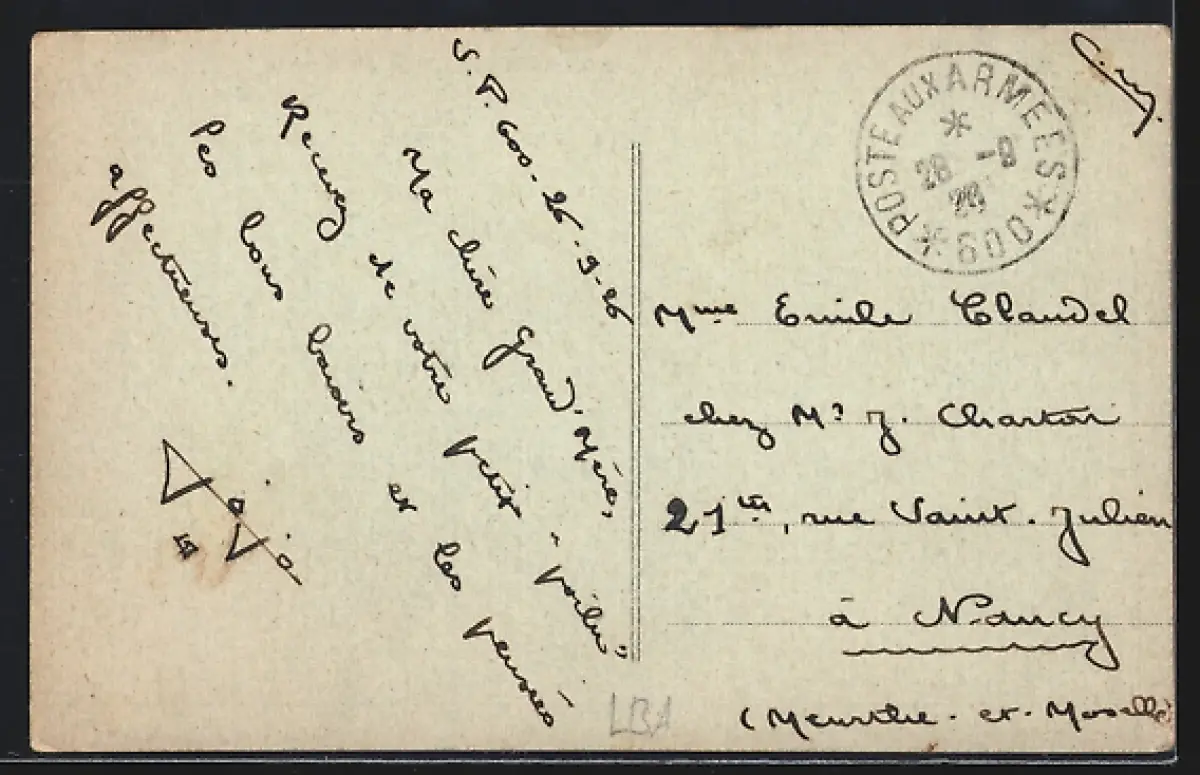 S. P. 600 - 26-9-26
Ma chère Grand'Mère,
Recevez de votre petit "poilu"
les bons baisers et les pensées
affectueuses.
*POSTE AUX ARMEES*
*
28 -9
26
600
Mme Emile Claudel
chez Mr J. Charton
21ter, rue Saint-Julien
à Nancy
(Meurthe-et-Moselle
LBA